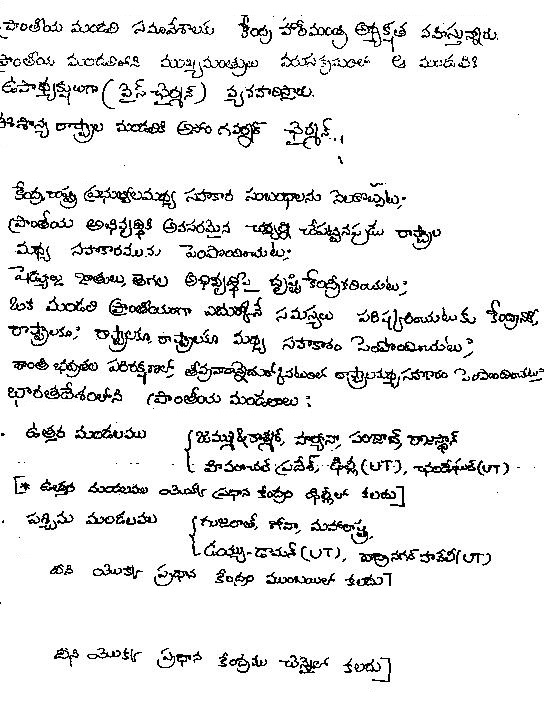 ప్రాంతీయ మండలి సమావేశాలకు కేంద్ర హోంమంత్రి అధ్యక్షత వహిస్తున్నారు.
ప్రాంతీయ మండలిలోని ముఖ్యమంత్రులు వరుసక్రమంలో ఆ మండలికి
ఉపాధ్యక్షులుగా (వైస్ ఛైర్మన్) వ్యవహరిస్తారు.
ఈశాన్య రాష్ట్రాల మండలికి అసోం గవర్నర్ ఛైర్మన్.
కేంద్ర, రాష్ట్ర ప్రభుత్వాలమధ్య సహకార సంబంధాలను నెలకొల్పుట;
ప్రాంతీయ అభివృద్ధికి అవసరమైన చర్యల్ని చేపట్టినపుడు రాష్ట్రాల
మధ్య సహకారమును పెంపొందించుట;
షెడ్యుల్డు జాతులు, తెగల అభివృద్ధిపై దృష్టి కేంద్రీకరించుట;
ఒక మండలి ప్రాంతీయంగా ఎదుర్కొనే సమస్యల పరిష్కరించుటకు కేంద్రానికి,
రాష్ట్రాలకూ; రాష్ట్రాలకూ, రాష్ట్రాలకూ మధ్య సహకారం పెంపొందించుట;
శాంతి భద్రతల పరిరక్షణలో, తీవ్రవాదాన్నెదుర్కొనుటలో రాష్ట్రాలమధ్య సహకారం పెంపొందించుట;
భారతదేశంలోని ప్రాంతీయ మండలాలు :
. ఉత్తర మండలము { జమ్ము & కాశ్మీర్, హర్యానా, పంజాబ్, రాజస్థాన్
హిమాచల్ ప్రదేశ్, ఢిల్లీ (UT), చండీఘడ్ (UT)
[* ఉత్తర మండలము యొక్క ప్రధాన కేంద్రం ఢిల్లీలో కలదు]
. పశ్చిమ మండలము { గుజరాత్, గోవా, మహారాష్ట్ర,
డయ్యు-డామన్ (UT), దాద్రానగర్ హవేలి (UT)
దీని యొక్క ప్రధాన కేంద్రం ముంబయిలో కలదు]
దీని యొక్క ప్రధాన కేంద్రము చెన్నైలో కలదు]